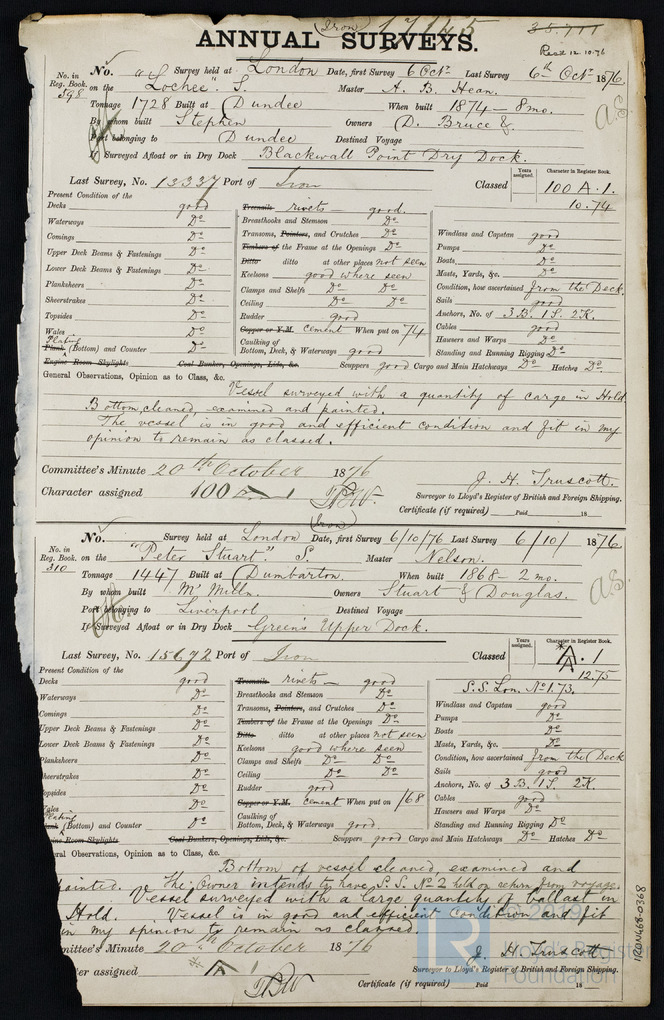 (Iron) 17145 35.711
ANNUAL SURVEYS.
Recd 12.10.76
No. Survey held at London Date, first Survey 6 Octr Last Survey 6th Octr 1876
No. in Reg. Book 598 on the "Lochee". S. Master A. B. Hean.
Tonnage 1728 Built at Dundee When built 1874 - 8 mo.
By whom built Stephen Owners D. Bruce &.
Port belonging to Dundee Destined Voyage
If Surveyed Afloat or in Dry Dock Blackwall Point Dry Dock.
Last Survey, No. 13337 Port of Iron Classed Years assigned. Character in Register Book. 100 A.1.
10.74
Present Condition of the
Decks good
Waterways Do
Comings Do
Upper Deck Beams & Fastenings Do
Lower Deck Beams & Fastenings Do
Planksheers Do
Sheerstrakes Do
Topsides Do
Wales Do
Plating
Plank (Bottom) and Counter Do
Engine Room Skylights Coal Bunker, Openings, Lids, &c.
Treenails rivets - good.
Breasthooks and Stemson Do
Transoms, Pointers, and Crutches Do
Timbers of the Frame at the Openings Do
Ditto ditto at other places not seen
Keelsons good where seen
Clamps and Shelfs Do Do
Ceiling Do Do
Rudder good
Copper or Y.M. cement When put on 74
Caulking of
Bottom, Deck, & Waterways good
Windlass and Capstan good
Pumps Do
Boats Do
Masts, Yards, &c. Do
Condition, how ascertained from the Deck
Sails good
Anchors, No. of 3 B. 1 S. 2 K.
Cables good
Hawsers and Warps Do
Standing and Running Rigging Do
Scuppers good Cargo and Main Hatchways Do Hatches Do
General Observations, Opinion as to Class, &c.
Vessel surveyed with a quantity of cargo in Hold
Bottom cleaned examined and painted.
The vessel is in good and efficient condition and fit in my
opinion to remain as classed.
Committee's Minute 20th October 1876
Character assigned 100 A 1
J. H. Truscott.
Surveyor to Lloyd's Register of British and Foreign Shipping.
Certificate (if required) Paid 18
(Iron)
No. Survey held at London Date, first Survey 6/10/76 Last Survey 6/10/ 1876
No. in Reg. Book 310 on the "Peter Stuart". S Master Nelson.
Tonnage 1447 Built at Dumbarton. When built 1868 - 2 mo.
By whom built McMilln. Owners Stuart & Douglas.
Port belonging to Liverpool Destined Voyage
If Surveyed Afloat or in Dry Dock Green's Upper Dock.
Last Survey, No. 15672 Port of Iron Classed Years assigned. Character in Register Book. A.1
12.75
S.S. Lon. No 1.73.
Present Condition of the
Decks good
Waterways Do
Comings Do
Upper Deck Beams & Fastenings Do
Lower Deck Beams & Fastenings Do
Planksheers Do
heerstrakes Do
opsides Do
ales Do
Plating
(Bottom) and Counter Do
ine Room Skylights Coal Bunkers, Openings, Lids, &c.
Treenails rivets - good
Breasthooks and Stemson Do
Transoms, Pointers, and Crutches Do
Timbers of the Frame at the Openings Do
Ditto ditto at other places not seen
Keelsons good where seen
Clamps and Shelfs Do Do
Ceiling Do Do
Rudder good
Copper or Y.M. cement When put on /68
Caulking of
Bottom, Deck, & Waterways good
Windlass and Capstan good
Pumps Do
Boats Do
Masts, Yards, &c. Do
Condition, how ascertained from the Deck
Sails good
Anchors, No. of 3 B. 1 S. 2 K.
Cables good
Hawsers and Warps Do
Standing and Running Rigging Do
Scuppers good Cargo and Main Hatchways Do Hatches Do
ral Observations, Opinion as to Class, &c.
Bottom of vessel cleaned examined and
ainted. The Owner intends to have S.S. No 2 held on return from voyage.
Vessel surveyed with a large quantity of ballast in
Hold. Vessel is in good and efficient condition and fit
in my opinion to remain as classed.
mittee's Minute 20th October 1876
ter assigned A 1
J. H. Truscott
Surveyor to Lloyd's Register of British and Foreign Shipping.
Certificate (if required) Paid 18
LR
2019
Lloyd's Register
Foundation
IRON468-0368